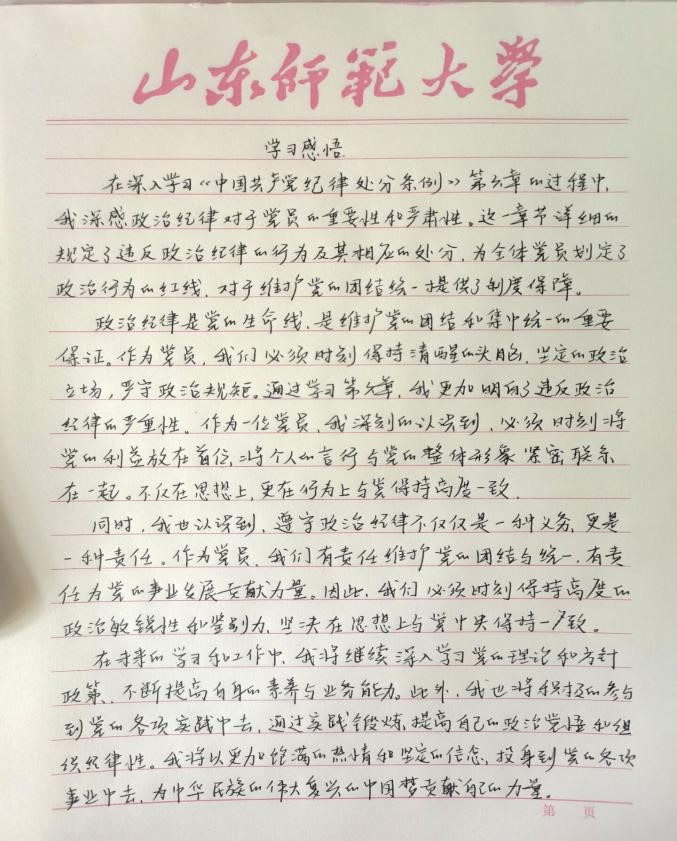 山东师范大学
学习感悟
在深入学习《中国共产党纪律处分条例》第六章的过程中,
我深感政治纪律对于党员的重要性和严肃性。这一章节详细的
规定了违反政治纪律的行为及其相应的处分,为全体党员划定了
政治行为的红线,对于维护党的团结统一提供了制度保障。
政治纪律是党的生命线,是维护党的团结和集中统一的重要
保证。作为党员,我们必须时刻保持清醒的头脑,坚定的政治
立场,严守政治规矩。通过学习第六章,我更加明白了违反政治
纪律的严重性。作为一位党员,我深刻的认识到,必须时刻将
党的利益放在首位,将个人的言行与党的整体形象紧密联系
在一起。不仅在思想上,更在行为上与党保持高度一致.
同时,我也认识到,遵守政治纪律不仅仅是一种义务,更是
一种责任。作为党员,我们有责任维护党的团结与统一,有责
任为党的事业发展贡献力量。因此,我们必须时刻保持高度的
政治敏锐性和鉴别力,坚决在思想上与党中央保持一致。
在未来的学习和工作中,我将继续深入学习党的理论和方针
政策,不断提高自身的素养与业务能力。此外,我也将积极的参与
到党的各项实践中去,通过实践锻炼,提高自己的政治觉悟和组
织纪律性。我将以更加饱满的热情和坚定的信念,投身到党的各项
事业中去,为中华民族的伟大复兴的中国梦贡献自己的力量。
第 页